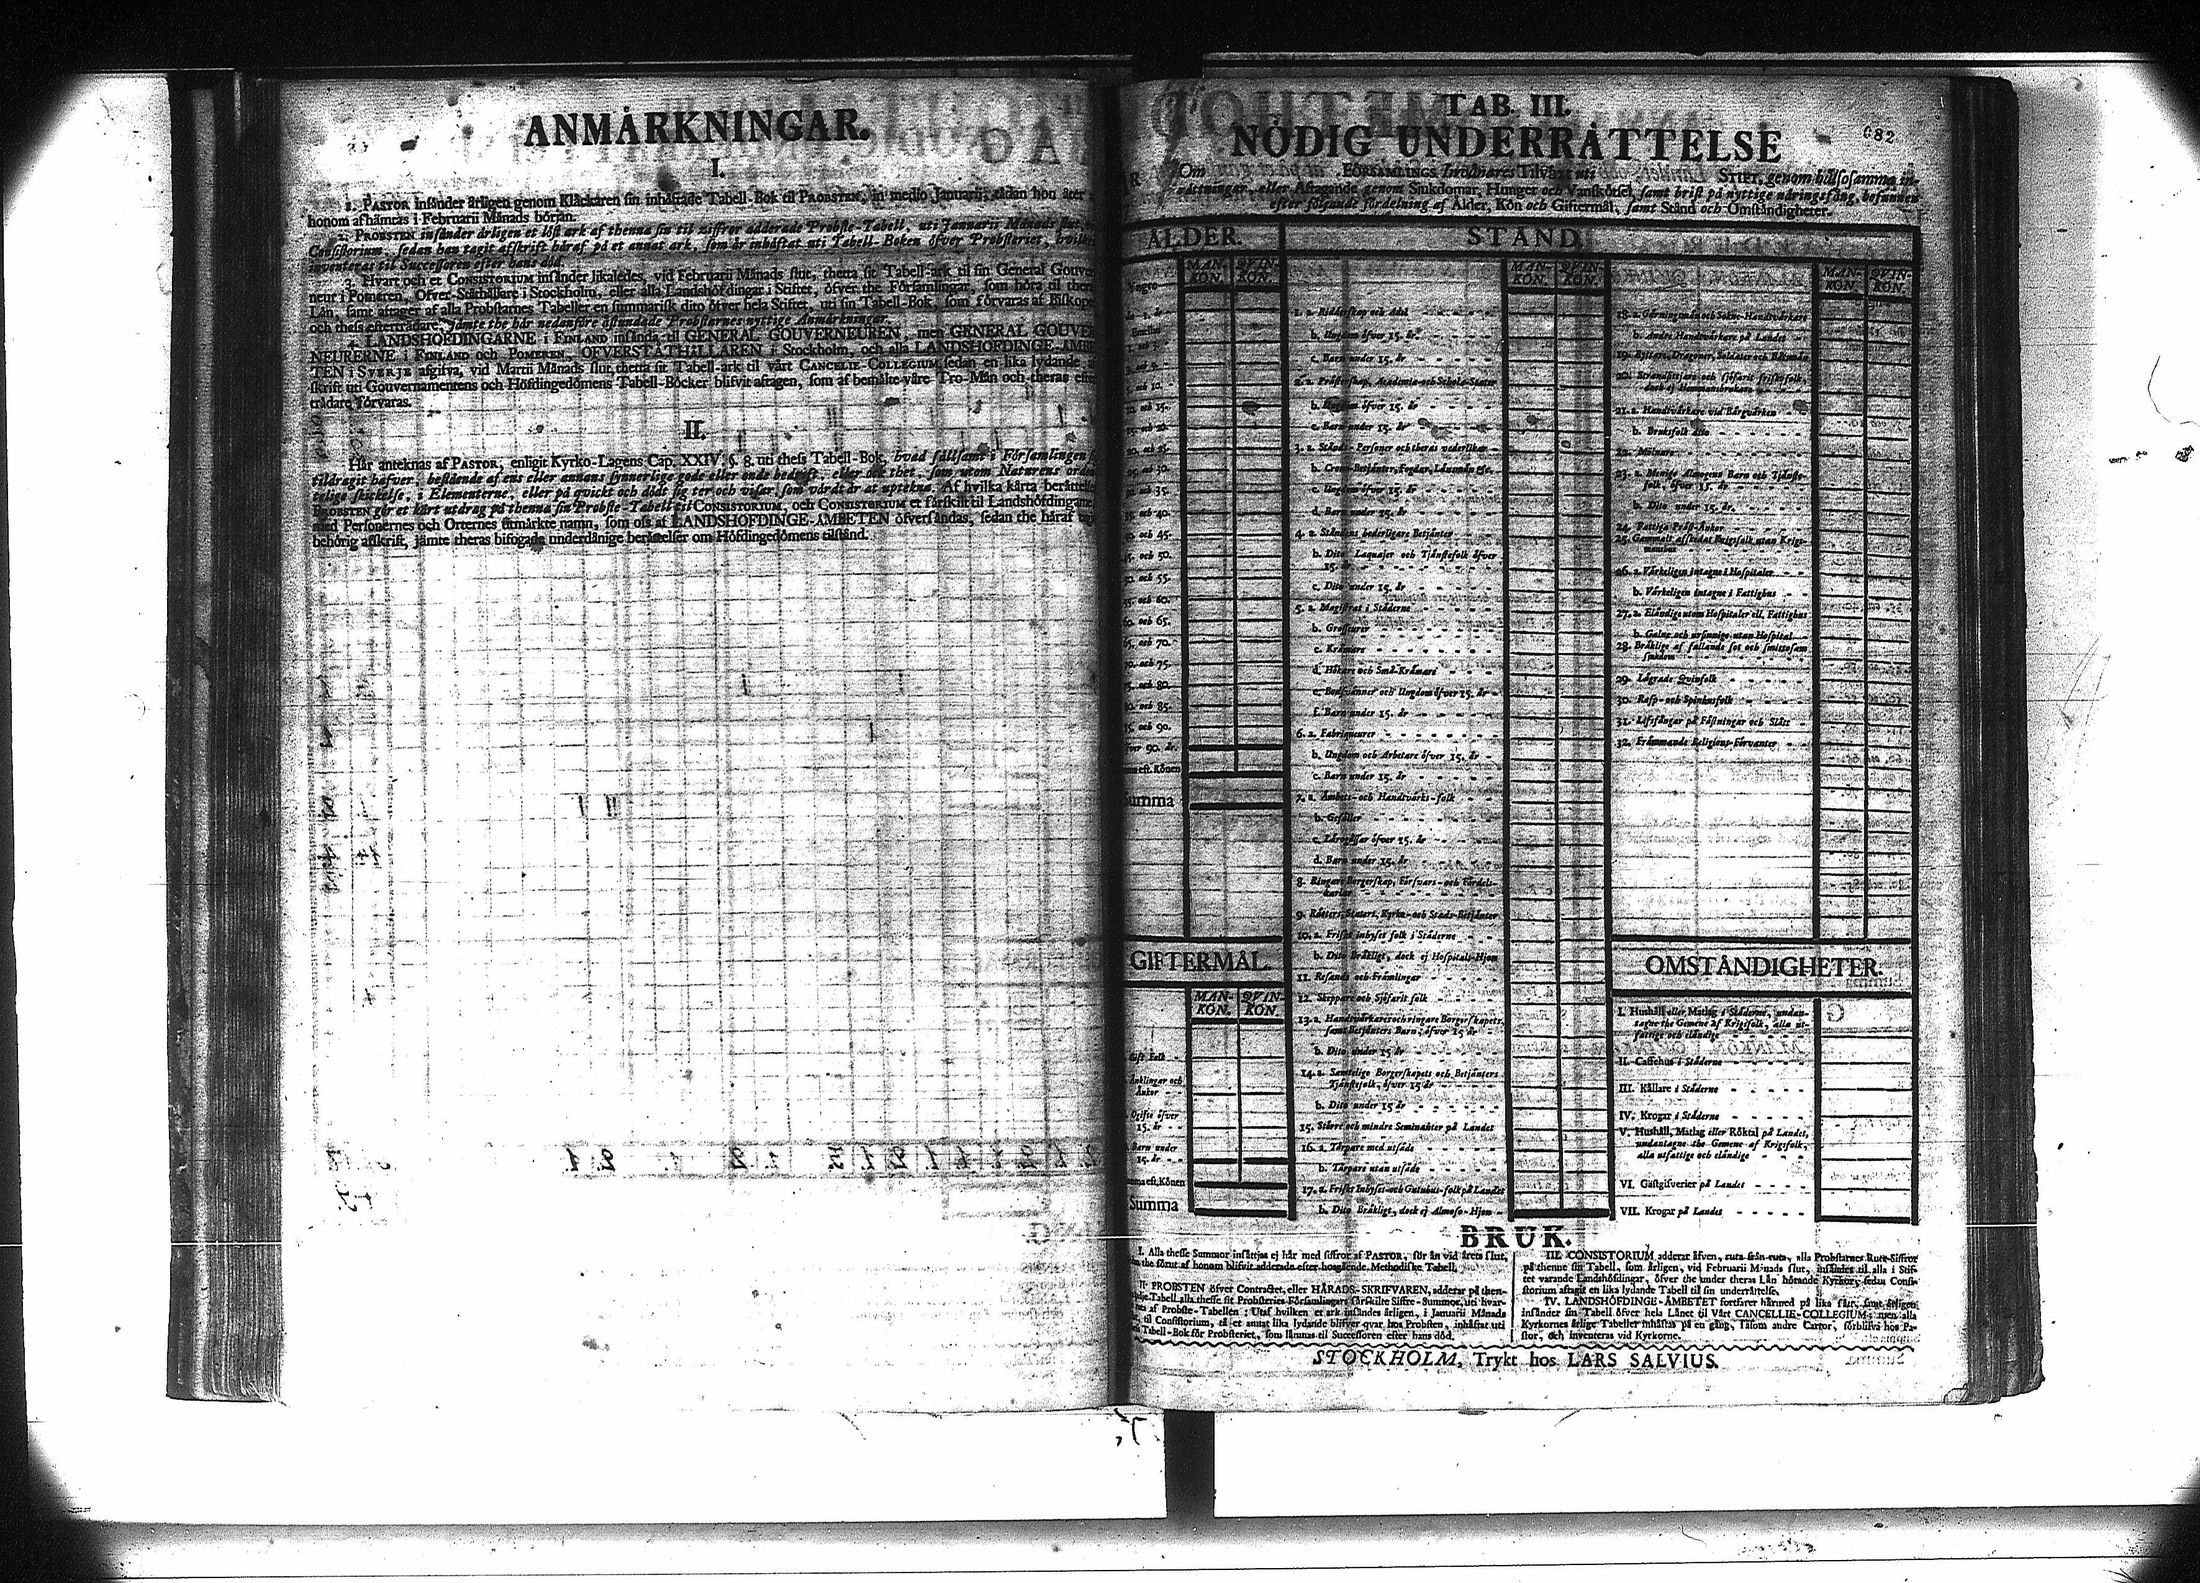 ANMÄRKNINGAR.
I.
1. PASTOR insänder årligen genom Klåckaren sin inhäftade Tabell-Bok til PROBSTEN, in medio Januarii, sådan hon åter
honom afhämtas i Februarii Månads början.
2. PROBSTEN insänder årligen et löst ark af thenna sin til ziffror adderade Probste-Tabell, uti Januarii Månads slut,
Consistorium, sedan han tagit afskrift häraf på et annat ark, som är inhäftat uti Tabell-Boken öfver Probsteriet,
inventeras til Successoren efter hans död.
3. Hvart och et CONSISTORIUM insänder likaledes, vid Februarii Månads slut, thetta sit Tabell-ark til sin General Gouver
neur i Pomeren, Öfver-Ståthållare i Stockholm, eller alla Landshöfdingar i Stiftet, öfver the Församlingar, som höra til
Län, samt aftager af alla Probstarnes Tabeller en summarisk dito öfver hela Stiftet, uti sin Tabell-Bok, som förvaras af Biskopen
och thess efterträdare, jämte the här nedanföre åstundade Probstarnes nyttige Anmärkningar.
4. LANDSHÖFDINGARNE i FINLAND insända til GENERAL GOUVERNEUREN, men GENERAL GOUVER
NEURERNE i FINLAND och POMEREN, ÖFVERSTÅTHÅLLAREN i Stockholm, och alla LANDSHÖFDINGE-ÄMBE
TEN i SVERJE afgifva, vid Martii Månads slut, thetta sit Tabell-ark til vårt CANCELIE-COLLEGIUM, sedan en lika lydande af
skrift uti Gouvernamentens och Höfdingedömens Tabell-Böcker blifvit aftagen, som af bemälte våre Tro-Män och theras efter
trädare förvaras.
II.
Här anteknas af PASTOR, enligit Kyrko-Lagens Cap. XXIV §. 8. uti thess Tabell-Bok, hvad sällsamt i Församlingen
tildragit hafver, bestående af ens eller annans synnerlige gode eller onde bedrift, eller ock thet, som utom Naturens orden
telige skickelse, i Elementerne, eller på qvickt och dödt sig ter och visar, som värdt är at uptekna. Af hvilka kårta berättelser
PROBSTEN gör et kårt utdrag på thenna sin Probste-Tabell til CONSISTORIUM, och CONSISTORIUM et särskilt til Landshöfdingarne
med Personernes och Orternes utmärkte namn, som oss af LANDSHÖFDINGE-ÄMBETEN öfversändas, sedan the häraf
behörig afskrift, jämte theras bifogade underdånige berättelser om Höfdingedömens tilstånd.
682
TAB. III.
NÖDIG UNDERRÄTTELSE
Om FÖRSAMLINGS Invånares Tilväxt uti STIFT, genom hälsosamma in-
rättningar, eller Aftagande genom Sjukdomar, Hunger och Vanskötsel, samt brist på nyttige näringsfång, befunnen
efter följande fördelning af Ålder, Kön och Giftermål, samt Stånd och Omständigheter.
ÅLDER.
MAN-KÖN. QVIN-KÖN.
och 10.
och 15.
och 20.
och 25.
och 30.
och 35.
och 40.
och 45.
och 50.
och 55.
och 60.
60. och 65.
65. och 70.
70. och 75.
och 80.
och 85.
och 90.
öfver 90. år.
Summa eft. Könen
Summa
GIFTERMÅL.
MAN-KÖN. QVIN-KÖN.
Gift Folk
Änklingar och
Änkor
Ogifte öfver
15. år
Barn under
15. år
Summa eft. Könen
Summa
STÅND.
MAN-KÖN. QVIN-KÖN.
1. a. Ridderskap och Adel
b. Ungdom öfver 15. år
c. Barn under 15. år
2. a. Prästerskap, Academia-och Schola-Stater
b. Ungdom öfver 15. år
c. Barn under 15. år
3. a. Stånds-Personer och theras vederlikar
b. Crono-Betjänter, Fogdar, Länsmän &c.
c. Ungdom öfver 15. år
d. Barn under 15. år
4. a. Ståndens hederligare Betjänter
b. Dito Laquajer och Tjänstefolk öfver
15. år
c. Dito under 15. år
5. a. Magistrat i Städerne
b. Grosseurer
c. Krämare
d. Hökare och Små-Krämare
e. Bodsvänner och Ungdom öfver 15. år
f. Barn under 15. år
6. a. Fabriqueurer
b. Ungdom och Arbetare öfver 15. år
c. Barn under 15. år
7. a. Ämbets-och Handtvärks-folk
b. Gesäller
c. Lärogåssar öfver 15. år
d. Barn under 15. år
8. Ringare Borgerskap, Försvars-och Fördels-
karlar
9. Rådters, Staters, Kyrko-och Stads-Betjänter
10. a. Friskt inhyses folk i Städerne
b. Dito Bräkligt, dock ej Hospitals-Hjon
11. Resande och Främlingar
12. Skeppare och Sjöfarit folk
13. a. Handtvärkares och ringare Borgerskapets,
samt Betjänters Barn, öfver 15 år
b. Dito under 15 år
14. a. Samtelige Borgerskapets och Betjänters
Tjänstefolk, öfver 15 år
b. Dito under 15 år
15. Större och mindre Seminanter på Landet
16. a. Tårpare med utsäde
b. Tårpare utan utsäde
17. a. Friskt Inhyses-och Gatuhus-folk på Landet
b. Dito Bräkligt, dock ej Almoso-Hjon
MAN-KÖN. QVIN-KÖN.
18. a. Gärningsmän och Sokne-Handtvärkare
b. Andre Handtvärkare på Landet
19. Ryttare, Dragoner, Soldater och Båtsmän
20. Strandsittjare och sjöfarit friskt folk,
dock ej Hemmansbrukare
21. a. Handtvärkare vid Bärgvärken
b. Bruksfolk dito
22. Mölnare
23. a. Menige Almogens Barn och Tjänste-
folk, öfver 15. år
b. Dito under 15. år.
24. Fattiga Präst-Änkor
25. Gammalt afskedat Krigsfolk utan Krigs-
manshus
26. a. Värkeligen intagne i Hospitaler
b. Värkeligen intagne i Fattighus
27. a. Eländige utom Hospitaler ell. Fattighus
b. Galne och ursinnige utan Hospital
28. Bräklige af fallande sot och smittosam
sjukdom
29. Lägrade Qvinfolk
30. Rasp-och Spinhusfolk
31. Lifsfångar på Fästningar och Slått
32. Främmande Religions-Förvanter
OMSTÄNDIGHETER.
I. Hushåll eller Matlag i Städerne, undan-
tagne the Gemene af Krigsfolk, alla ut-
fattige och eländige
II. Caffehus i Städerne
III. Källare i Städerne
IV. Krogar i Städerne
V. Hushåll, Matlag eller Röktal på Landet,
undantagne the Gemene af Krigsfolk,
alla utfattige och eländige
VI. Gästgifverier på Landet
VII. Krogar på Landet
BRUK.
I. Alla thesse Summor insättjas ej här med siffror af PASTOR, för än vid årets slut,
the förut af honom blifvit adderade efter hosgående Methodiske Tabell.
II. PROBSTEN öfver Contractet, eller HÄRADS-SKRIFVAREN, adderar på then-
Tabell alla thesse sit Probsteries Församlingars särskilte Siffre-Summor, uti hvar-
af Probste-Tabellen: Utaf hvilken et ark insändes årligen, i Januarii Månads
til Consistorium, tå et annat lika lydande blifver qvar hos Probsten, inhäftat uti
Tabell-Bok för Probsteriet, som lämnas til Successoren efter hans död.
III. CONSISTORIUM adderar äfven, ruta från ruta, alla Probstarnes Rute-Siffror
på thenne sin Tabell, som årligen, vid Februarii Månads slut, insändes til alla i Stif-
tet varande Landshöfdingar, öfver the under theras Län hörande Kyrkor, sedan Consi-
storium aftagit en lika lydande Tabell til sin underrättelse.
IV. LANDSHÖFDINGE-ÄMBETET fortfarer härmed på lika sätt, samt årligen
insänder sin Tabell öfver hela Länet til Vårt CANCELLIE-COLLEGIUM; men alla
Kyrkornes årlige Tabeller inhäftas på en gång, såsom andre Cartor, förblifva hos Pa-
stor, och inventeras vid Kyrkorne.
STOCKHOLM, Trykt hos LARS SALVIUS.